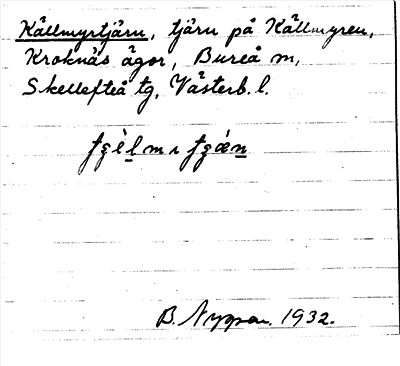 Källmyrtjärn, tjärn på Källmyren,
Kroknäs ägor, Bureå m,
Skellefteå tg, Västerb. l.
B. Nyman. 1932.